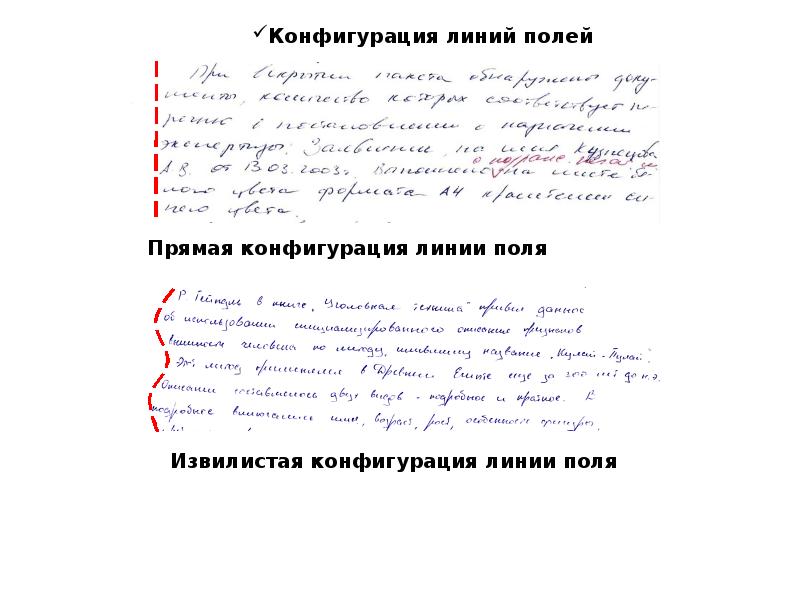 ✓Конфигурация линий полей
При вскрытии пакета обнаружены доку-
менты, количество которых соответствует пе-
речню в постановлении о назначении
экспертизы: Заявление, на имя Кузнецова
А.В. от 13.03.2003г. Выполнено на листе бе-
лого цвета формата А4 красителем си-
него цвета.
Прямая конфигурация линии поля
Р. Гейндль в книге "Уголовная техника" привел данные
об использовании специализированного описания признаков
внешности человека по методу, имевшему название
Этот метод применялся в Древнем Египте еще за лет до н.э.
Описание составлялось двух видов - подробное и краткое. В
подробное включались имя, возраст, рост, особенности фигуры,
Извилистая конфигурация линии поля